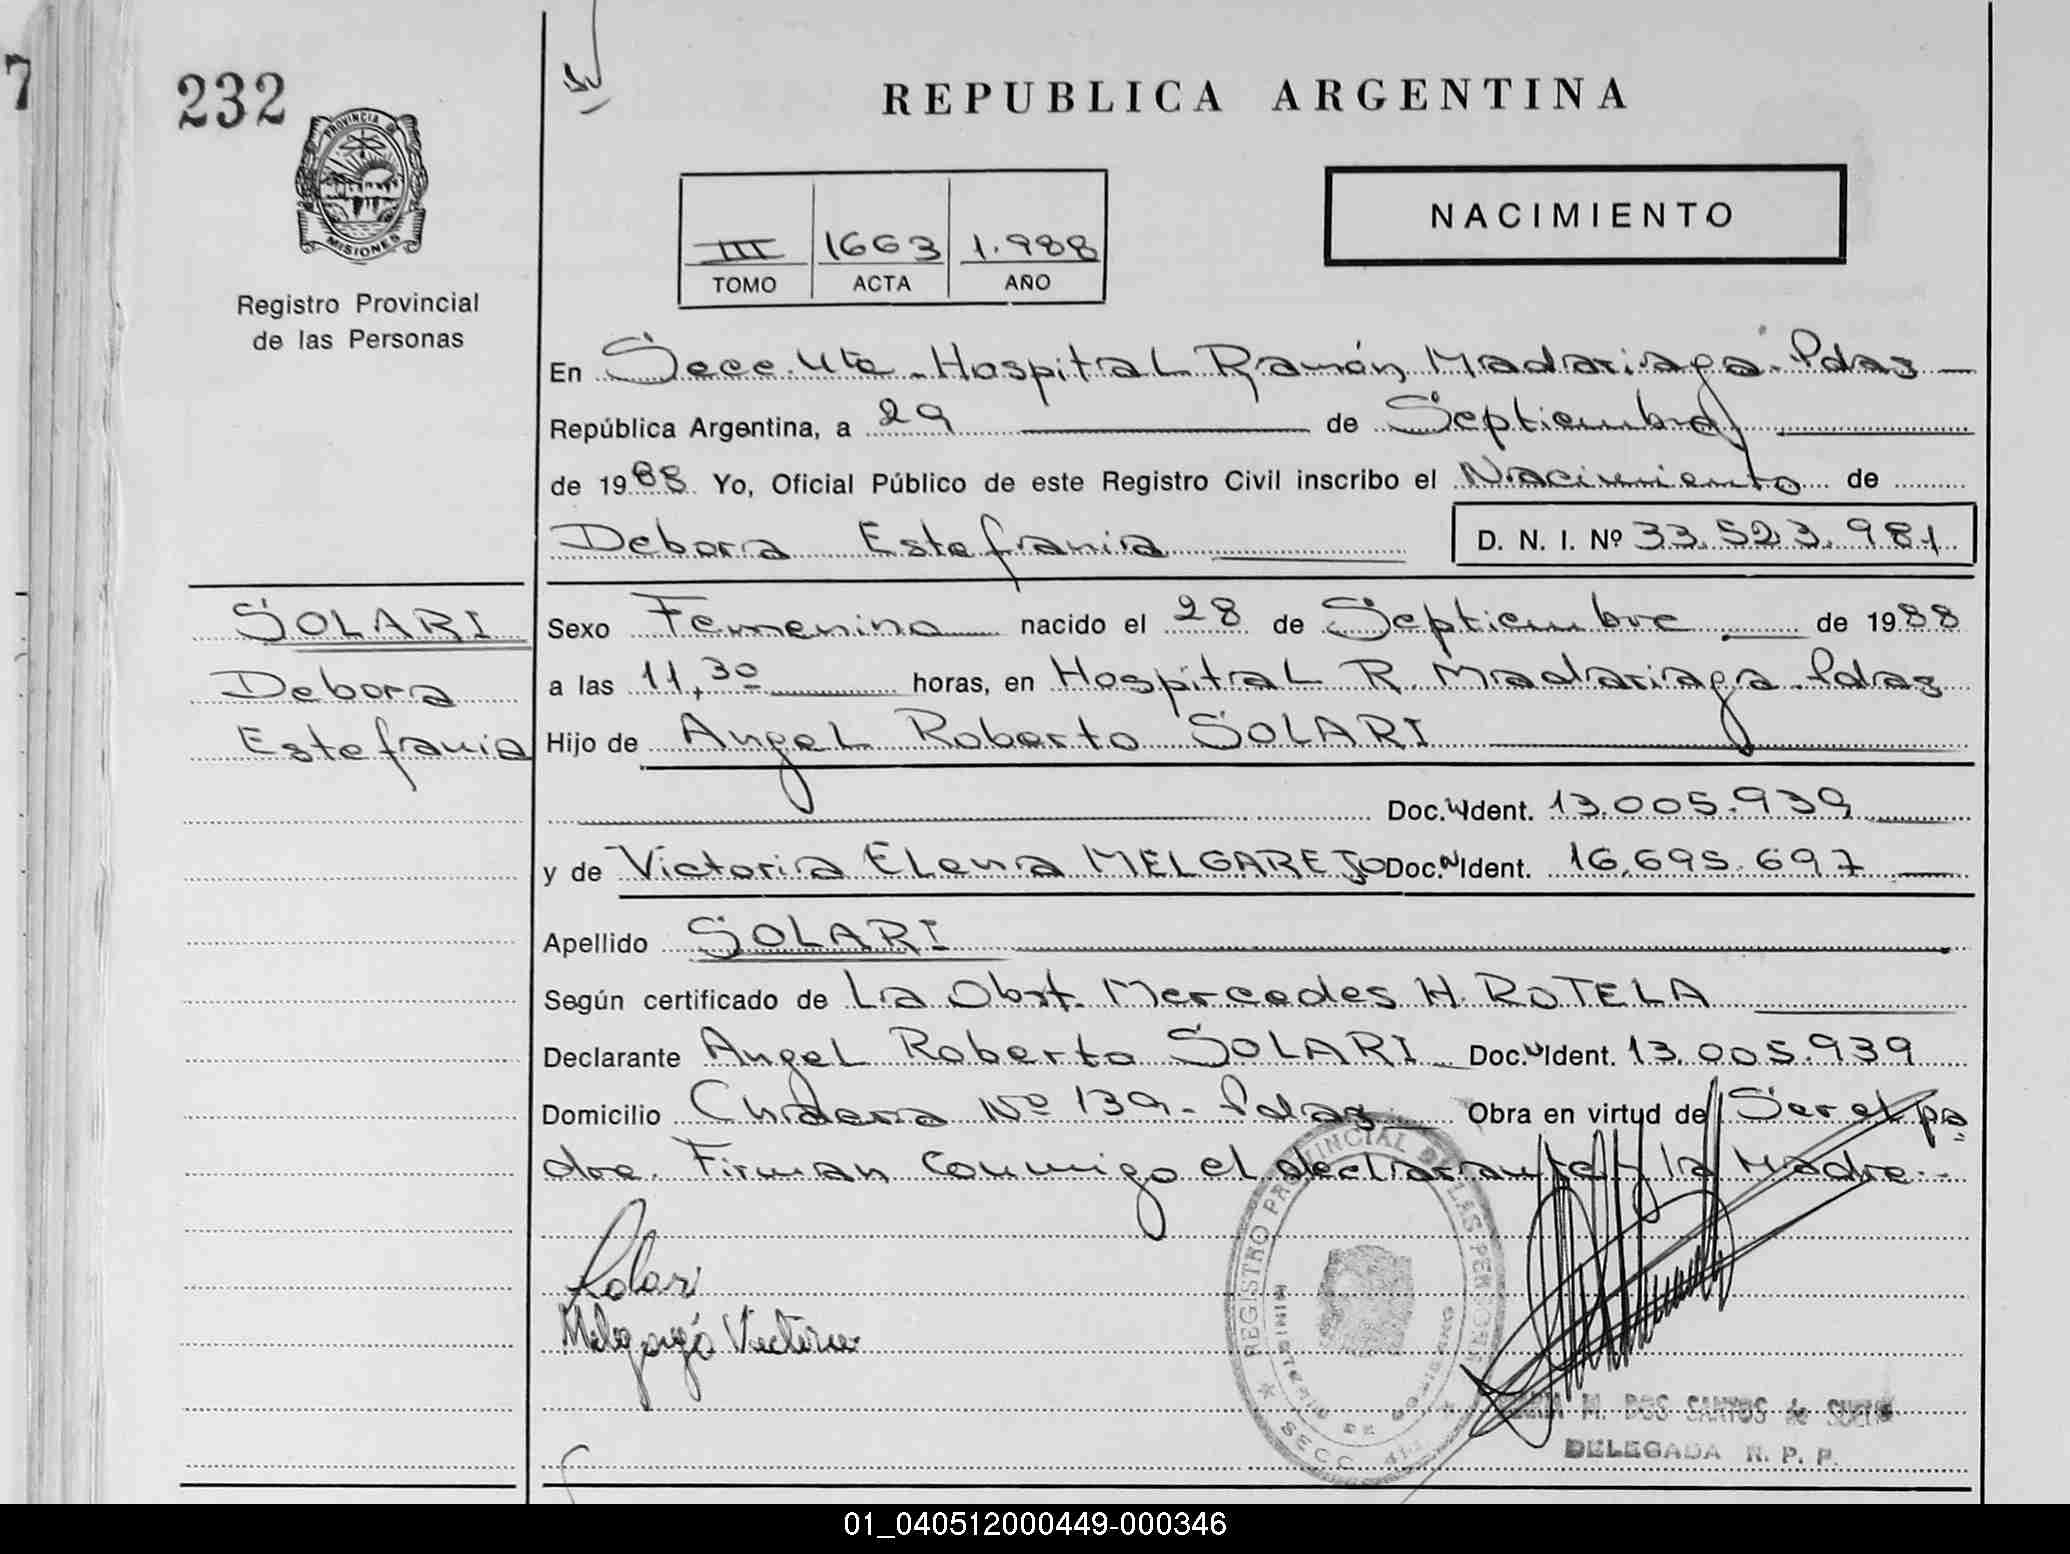 7
232
REPUBLICA ARGENTINA
PROVINCIA DE
MISIONES
Registro Provincial
de las Personas
III 1663 1.988
TOMO ACTA AÑO
NACIMIENTO
En Secc. 4ta. Hospital Ramón Madariaga. Pdas
República Argentina, a 29 de Septiembre
de 1988 Yo, Oficial Público de este Registro Civil inscribo el Nacimiento de
Debora Estefania D. N. I. Nº 33.523.981
SOLARI
Debora
Estefania
Sexo Femenino nacido el 28 de Septiembre de 1988
a las 11,30 horas, en Hospital R. Madariaga. Pdas
Hijo de Angel Roberto SOLARI
Doc. Ident. 13.005.939
y de Victoria Elena MELGAREJO Doc. Ident. 16.695.697
Apellido SOLARI
Según certificado de La Obst. Mercedes H. ROTELA
Declarante Angel Roberto SOLARI Doc. Ident. 13.005.939
Domicilio Nº 139 - Pdas Obra en virtud de Ser el pa
dre. Firman conmigo el declarante y la Madre.-
Solari
Melgarejo Victoria
REGISTRO PROVINCIAL DE LAS PERSONAS
MINISTERIO DE GOBIERNO
SECC. 4ta
M. DOS SANTOS de
DELEGADA R. P. P.
01_040512000449-000346